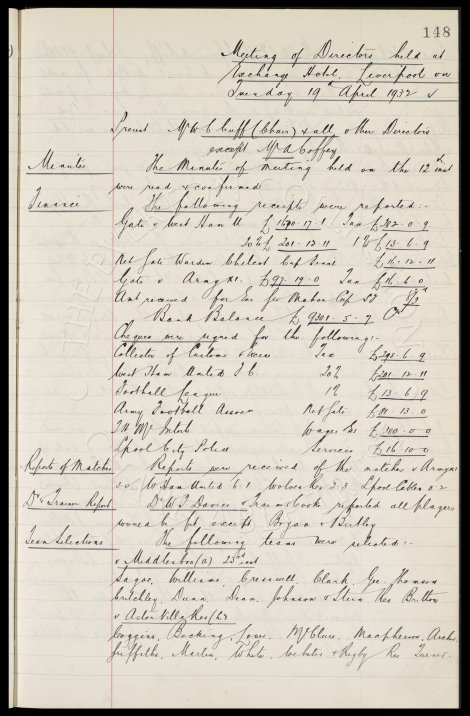 148
Meeting of Directors held at
Exchange Hotel. Liverpool on
Tuesday 19th April 1932
Present Mr W C Cuff (Chair) & all other Directors
except Mr A Coffey
Minutes The Minutes of meeting held on the 12th inst
were read & confirmed
Finance The following receipts were reported:-
Gate v West Ham U £ 1690-17-1 Tax £ 202-0-9
20% £ 201-12-11 1% £ 13-6-9
Net Gate Warden Challeat Cup Semi £ 16-12-11
Gate v Army XI. £ 97-19-0 Tax £ 16-6-0
Amt received for
Bank Balance £ 9301-5-7 Cr
Cheques were signed for the following:-
Collector of Customs & Excise Tax £ 295-6-9
West Ham United F C. 20% £ 201-12-11
Football League 1% £ 13-6-9
Army Football Assocn Net Gate £ 81-13-0
Wages &c £ 300-0-0
Lpool City Police Services £ 16-10-0
Reports of Matches Reports were received of the matches v Army
W Ham United 6.1 Wolves Res 2.3
Dr & Trainer Report Dr W J Davies & Trainer Cooke reported all players
would be fit except Bryan & Bentley
Team Selections The following teams were selected:-
v Middlesboro (a) 23rd inst
Sagar. Williams. Cresswell. Clark. Gee. Thomson
Critchley. Dunn. Dean. Johnson & Stein Res Britton
v Aston Villa Res (h)
Coggins. Bocking. Lowe. McClure. Macpherson. Archer.
Griffiths. Martin. White. Webster & Rigby Res